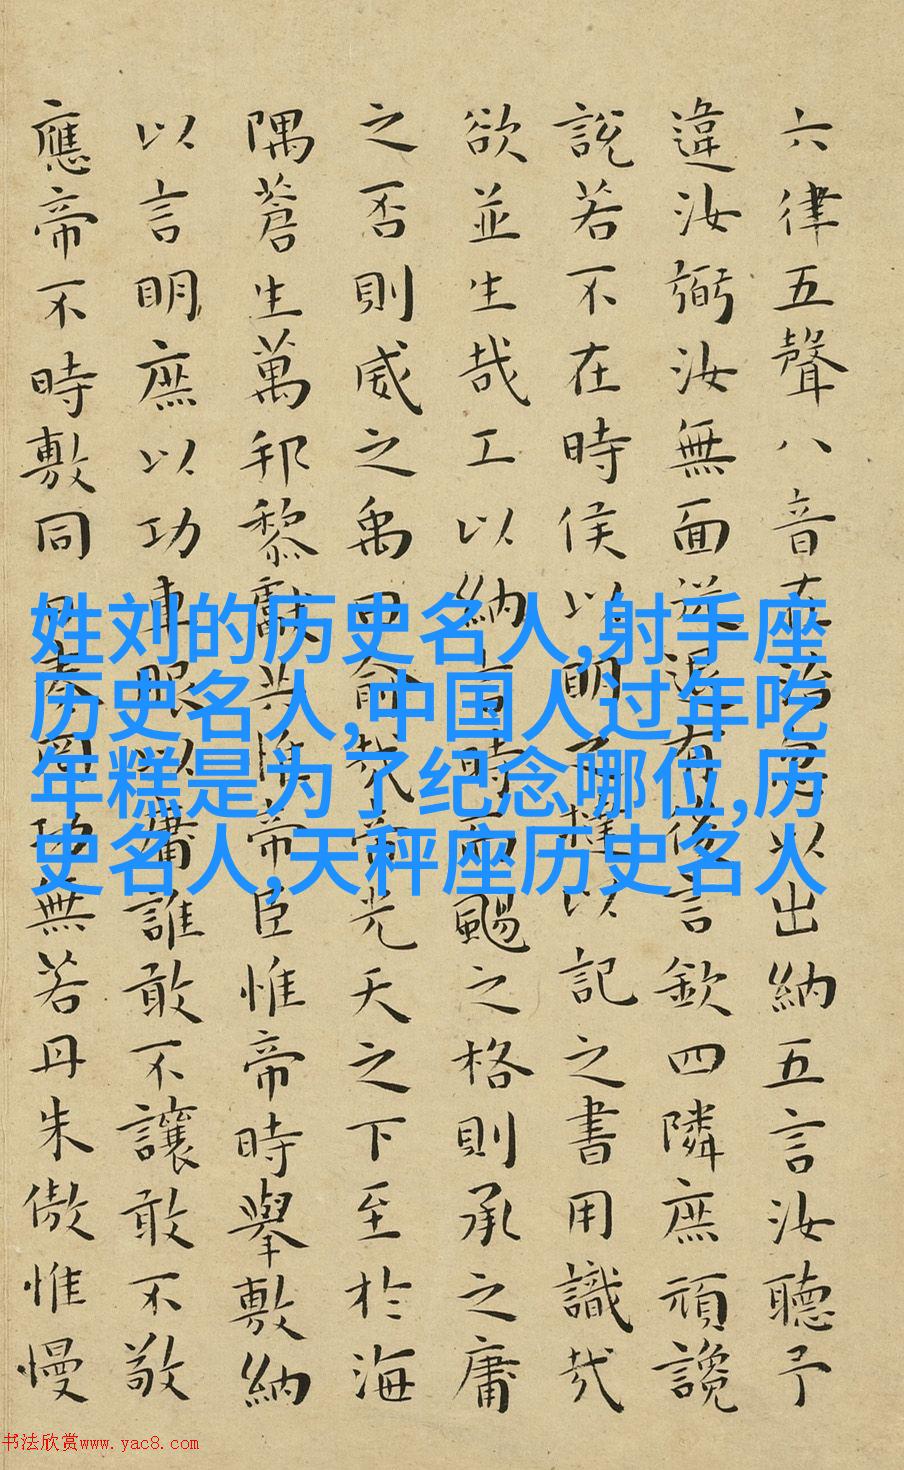 六律五聲八音在治忽以出納五言汝聽予
違汝弼汝無面從退有後言欽四隣庶頑讒
說若不在時侯以明之撻以記之書用識哉
欲並生哉工以納言時而颺之格則承之庸
之否則威之禹曰俞哉帝光天之下至於海
隅蒼生萬邦黎獻共惟帝臣惟帝時舉敷納
以言明庶以功車服以庸誰敢不讓敢不敬
應帝不時敷同日奏罔功無若丹朱傲惟慢
姓刘的历史名人,射手座
历史名人,中国人过年吃
年糕是为了纪念哪位,历
史名人,天秤座历史名人
书法欣赏www.yac8.com